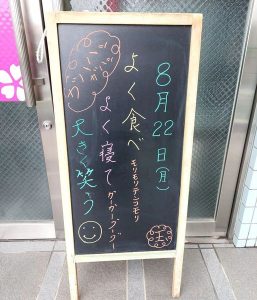 8月22日(月)
よく食べ モリモリデンコモリ
よく寝て グーグーブーブー
大きく笑う